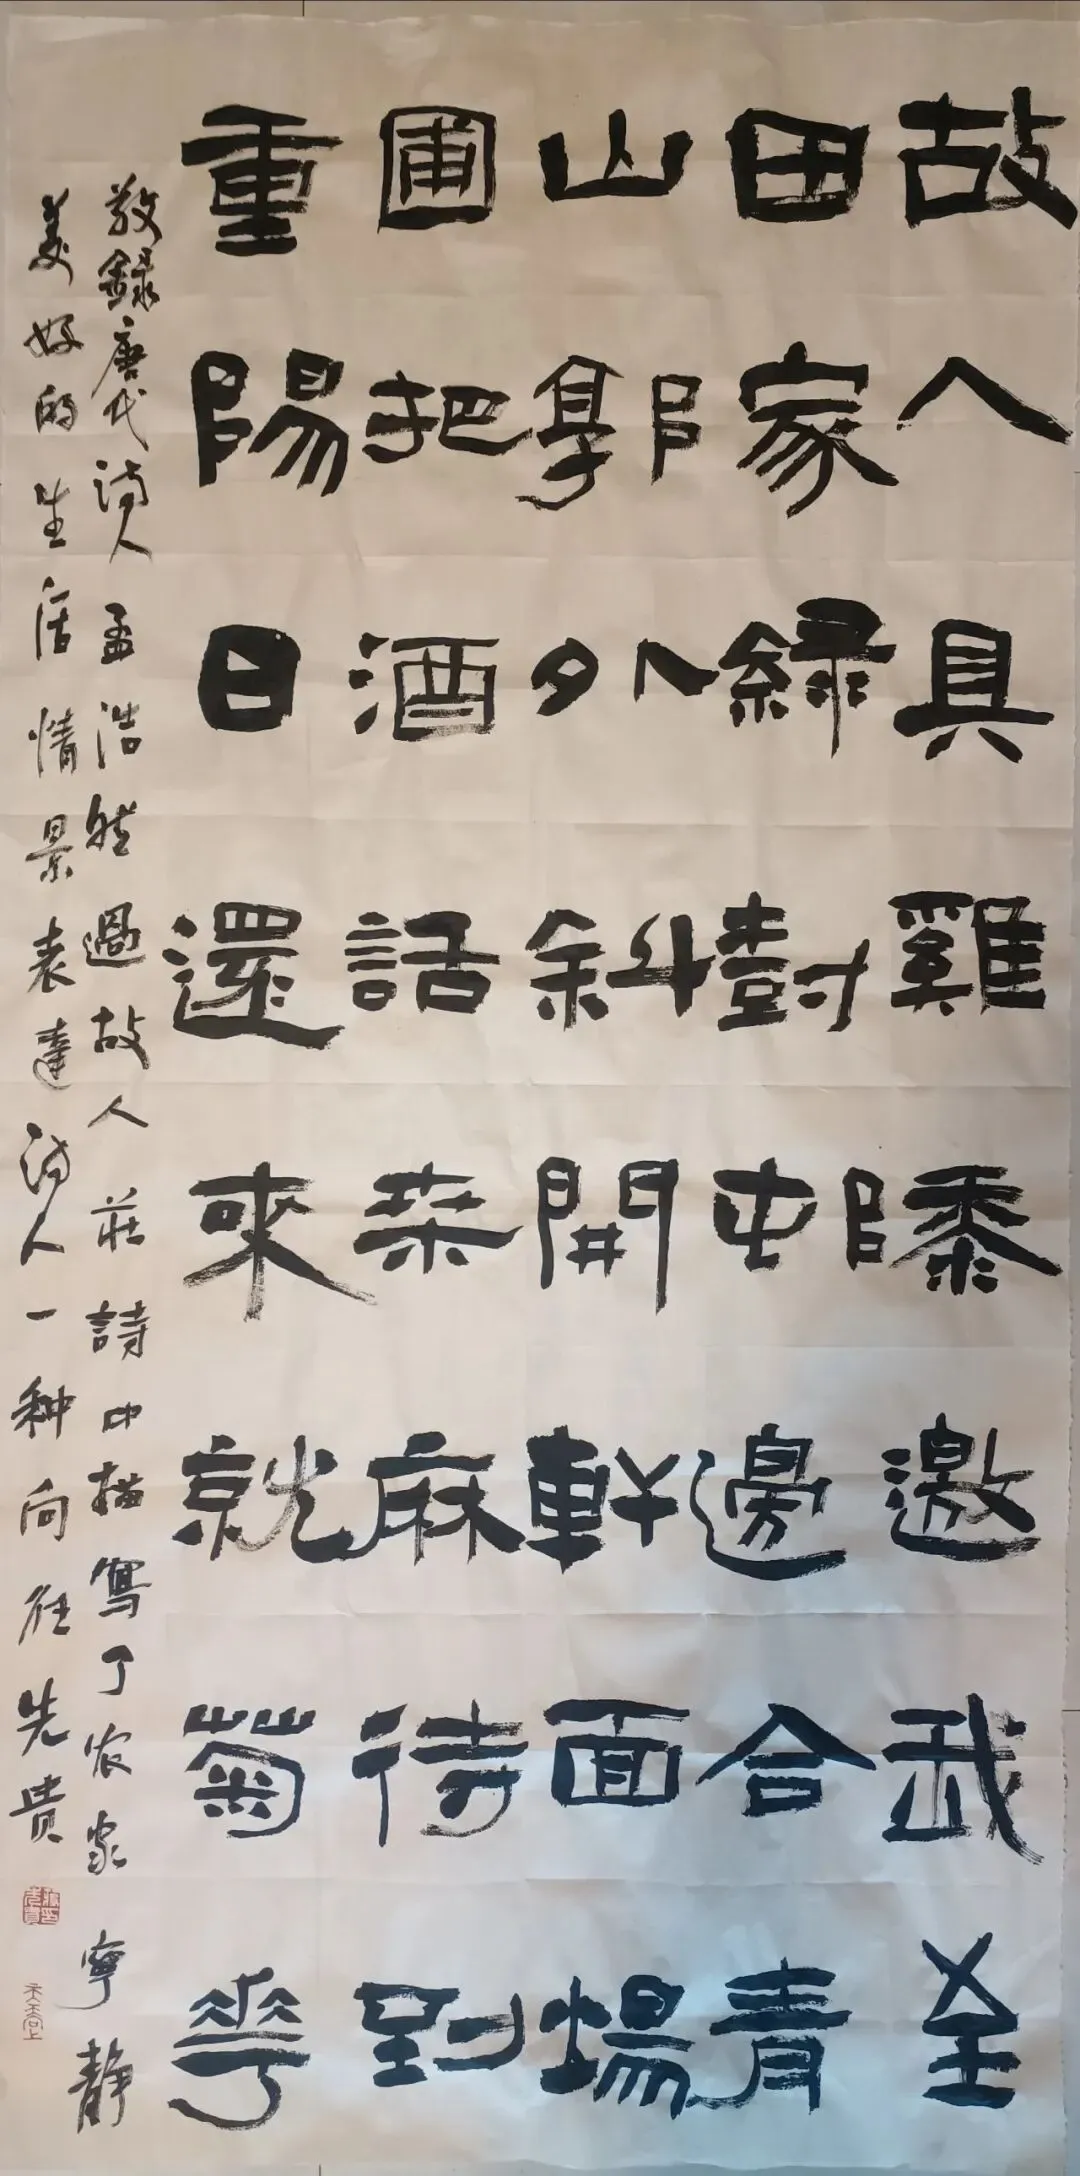 故人具雞黍邀我至
田家綠尌邨邊合青
山郭外斜開軒面場
圃把酒話桑麻待到
重陽日還來就菊花
敬録唐代诗人孟浩然過故人莊詩中描寫了农家寧靜
美好的生活情景表達诗人一种向往先贵